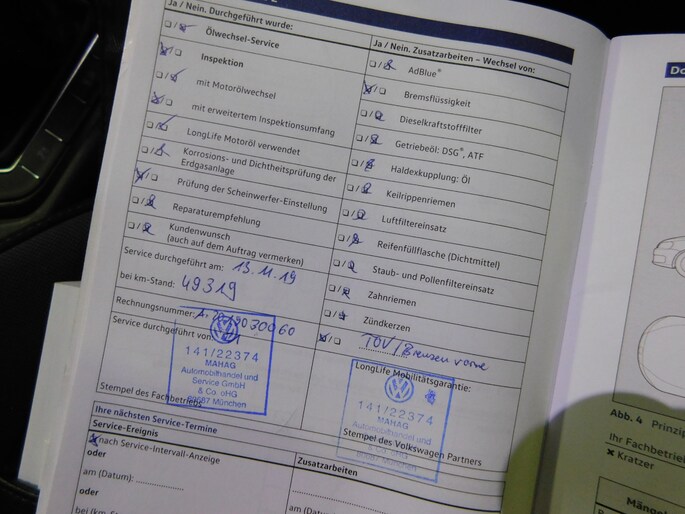 Ja / Nein. Durchgeführt wurde:
Ölwechsel-Service
Inspektion
mit Motorölwechsel
mit erweitertem Inspektionsumfang
LongLife Motoröl verwendet
Korrosions- und Dichtheitsprüfung der
Erdgasanlage
Prüfung der Scheinwerfer-Einstellung
Reparaturempfehlung
Kundenwunsch
(auch auf dem Auftrag vermerken)
Service durchgeführt am: 13.11.19
bei km-Stand: 49319
Rechnungsnummer:
Service durchgeführt von:
141/22374
MAHAG
Automobilhandel und
Service GmbH
& Co. oHG
München
Stempel des Fachbetriebs
Ja / Nein. Zusatzarbeiten – Wechsel von:
AdBlue®
Bremsflüssigkeit
Dieselkraftstofffilter
Getriebeöl: DSG®, ATF
Haldexkupplung: Öl
Keilrippenriemen
Luftfiltereinsatz
Reifenfüllflasche (Dichtmittel)
Staub- und Pollenfiltereinsatz
Zahnriemen
Zündkerzen
TÜV / Bremsen vorne
LongLife Mobilitätsgarantie:
141/22374
MAHAG
Automobilhandel und
Service GmbH
& Co. oHG
München
Stempel des Volkswagen Partners
Ihre nächsten Service-Termine
Service-Ereignis
nach Service-Intervall-Anzeige
oder
am (Datum):
oder
Zusatzarbeiten
am (Datum):
Do
Abb. 4 Prinzip
Ihr Fachbetrie
Kratzer
Mängel